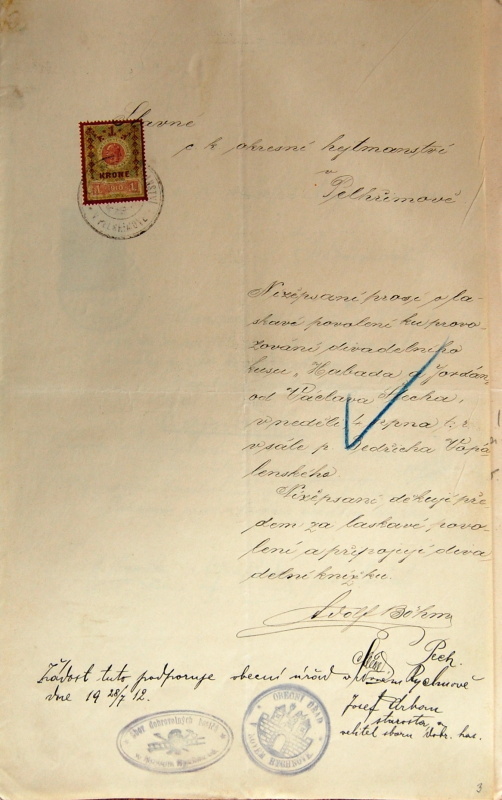 Slavné
c k okresní hejtmanství
v
Pelhřimově
1
KRONE
Nížepsaní prosí o la-
skavé povolení ku provo-
zování divadelního
kusu „Habada a Jordán,
od Václava Štecha,
v neděli 4 srpna t. r.
v sále p. Bedřicha Vopá-
lenského.
Nížepsaní děkují pře-
dem za laskavé povo-
lení a připojují diva-
delní knížku.
Adolf Böhm
Pech.
Žádost tuto podporuje obecní úřad v Rychnově
dne 19 28/7 12.
Josef Urban
starosta a
velitel sboru dobr. has.
sbor dobrovolných hasičů
OBECNÍ ÚŘAD
3